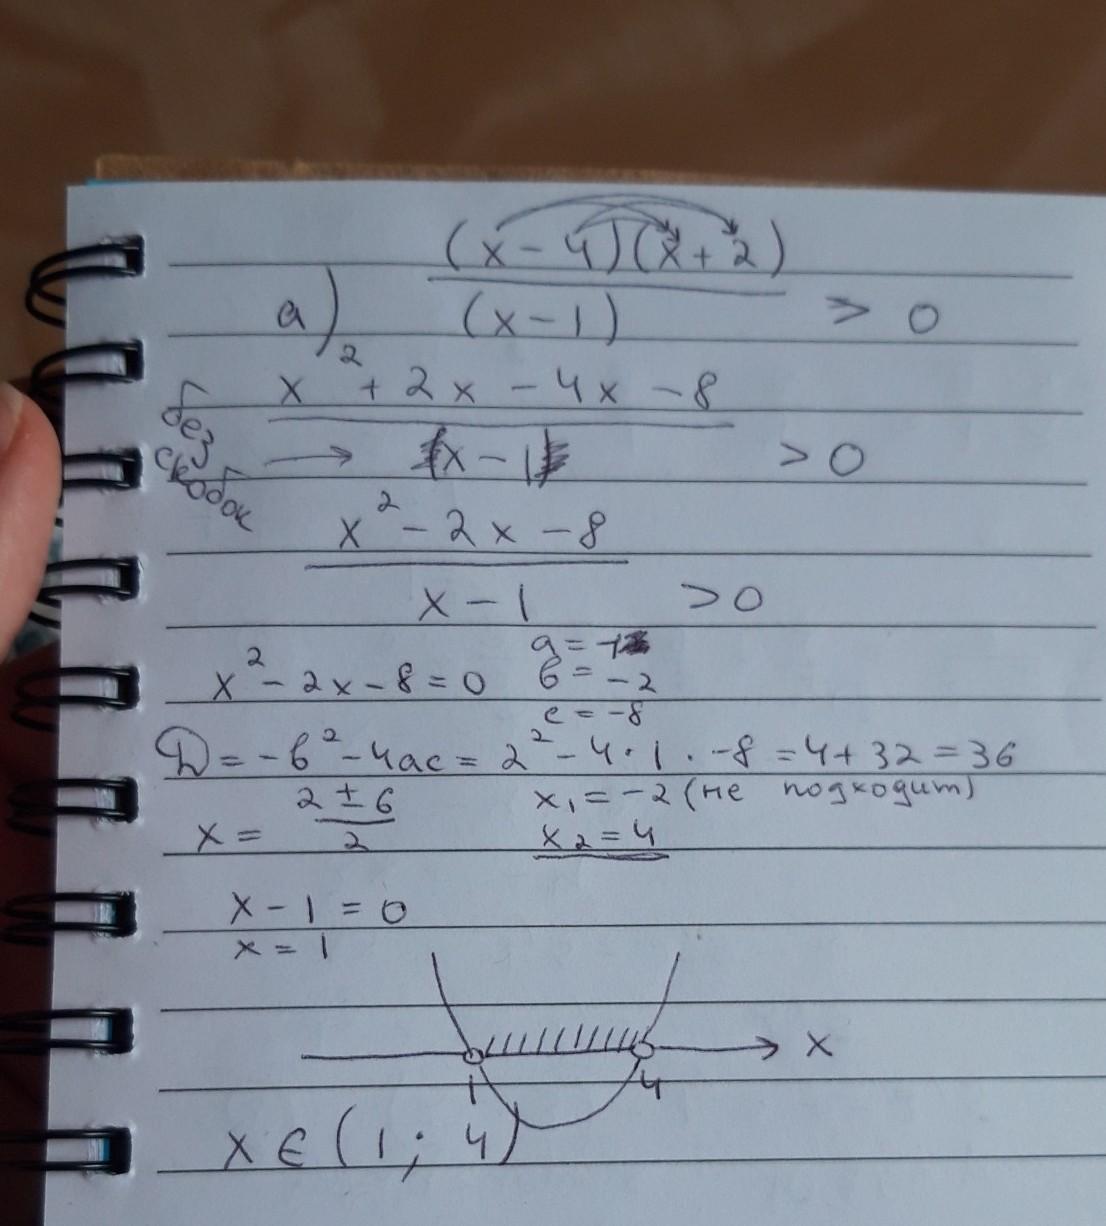 (x - 4)(x + 2)
а) (x - 1) > 0
x² + 2x - 4x - 8
без скобок → x - 1 > 0
x² - 2x - 8
x - 1 > 0
x² - 2x - 8 = 0
a = 1
b = -2
c = -8
D = -b² - 4ac = 2² - 4 · 1 · -8 = 4 + 32 = 36
x = 2 ± 6
2
x₁ = -2 (не подходит)
x₂ = 4
x - 1 = 0
x = 1
x
1 4
x ∈ (1; 4)